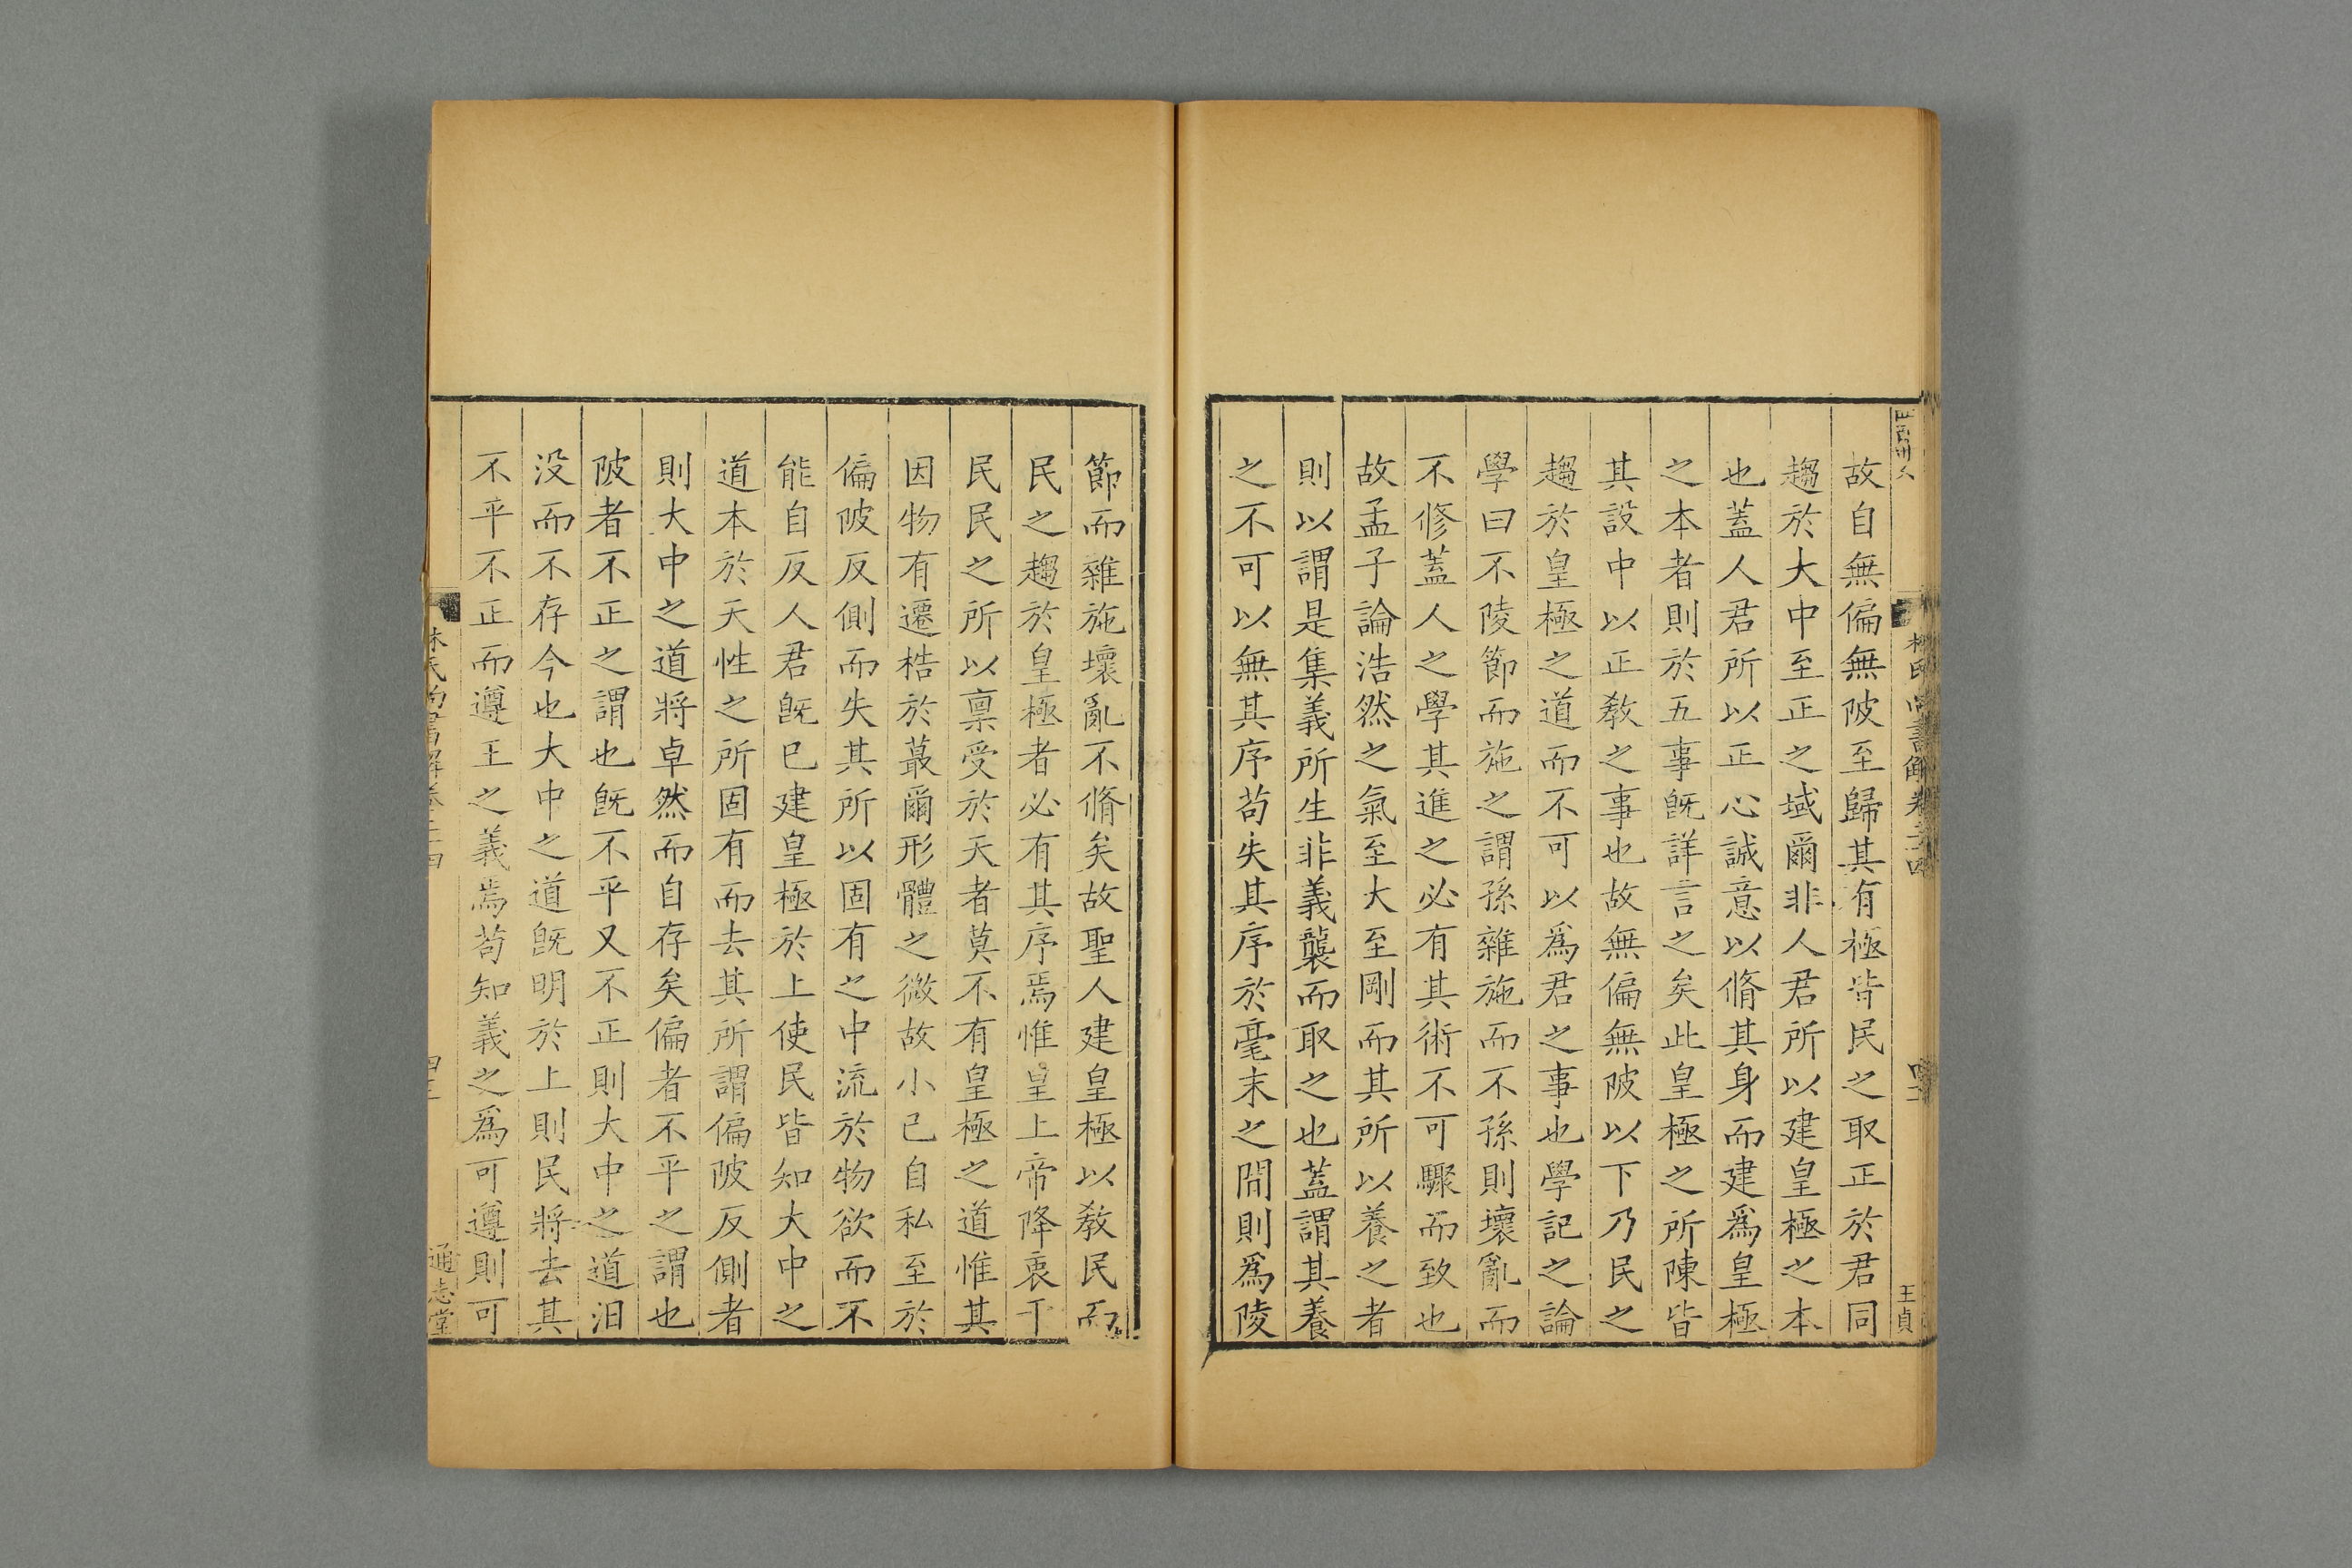 故自無偏無陂至歸其有極皆民之取正於君同
趨於大中至正之域爾非人君所以建皇極之本
也蓋人君所以正心誠意以脩其身而建爲皇極
之本者則於五事旣詳言之矣此皇極之所陳皆
其設中以正敎之事也故無偏無陂以下乃民之
趨於皇極之道而不可以爲君之事也學記之論
學曰不陵節而施之謂孫雜施而不孫則壞亂而
不修蓋人之學其進之必有其術不可驟而致也
故孟子論浩然之氣至大至剛而其所以養之者
則以謂是集義所生非義襲而取之也蓋謂其養
之不可以無其序苟失其序於毫末之間則爲陵
王貞
節而雜施壞亂不脩矣故聖人建皇極以敎民而
民之趨於皇極者必有其序焉惟皇上帝降衷于
民民之所以稟受於天者莫不有皇極之道惟其
因物有遷梏於蕞爾形體之微故小己自私至於
偏陂反側而失其所以固有之中流於物欲而不
能自反人君旣已建皇極於上使民皆知大中之
道本於天性之所固有而去其所謂偏陂反側者
則大中之道將卓然而自存矣偏者不平之謂也
陂者不正之謂也旣不平又不正則大中之道汩
没而不存今也大中之道旣明於上則民將去其
不平不正而遵王之義焉苟知義之爲可遵則可
通志堂